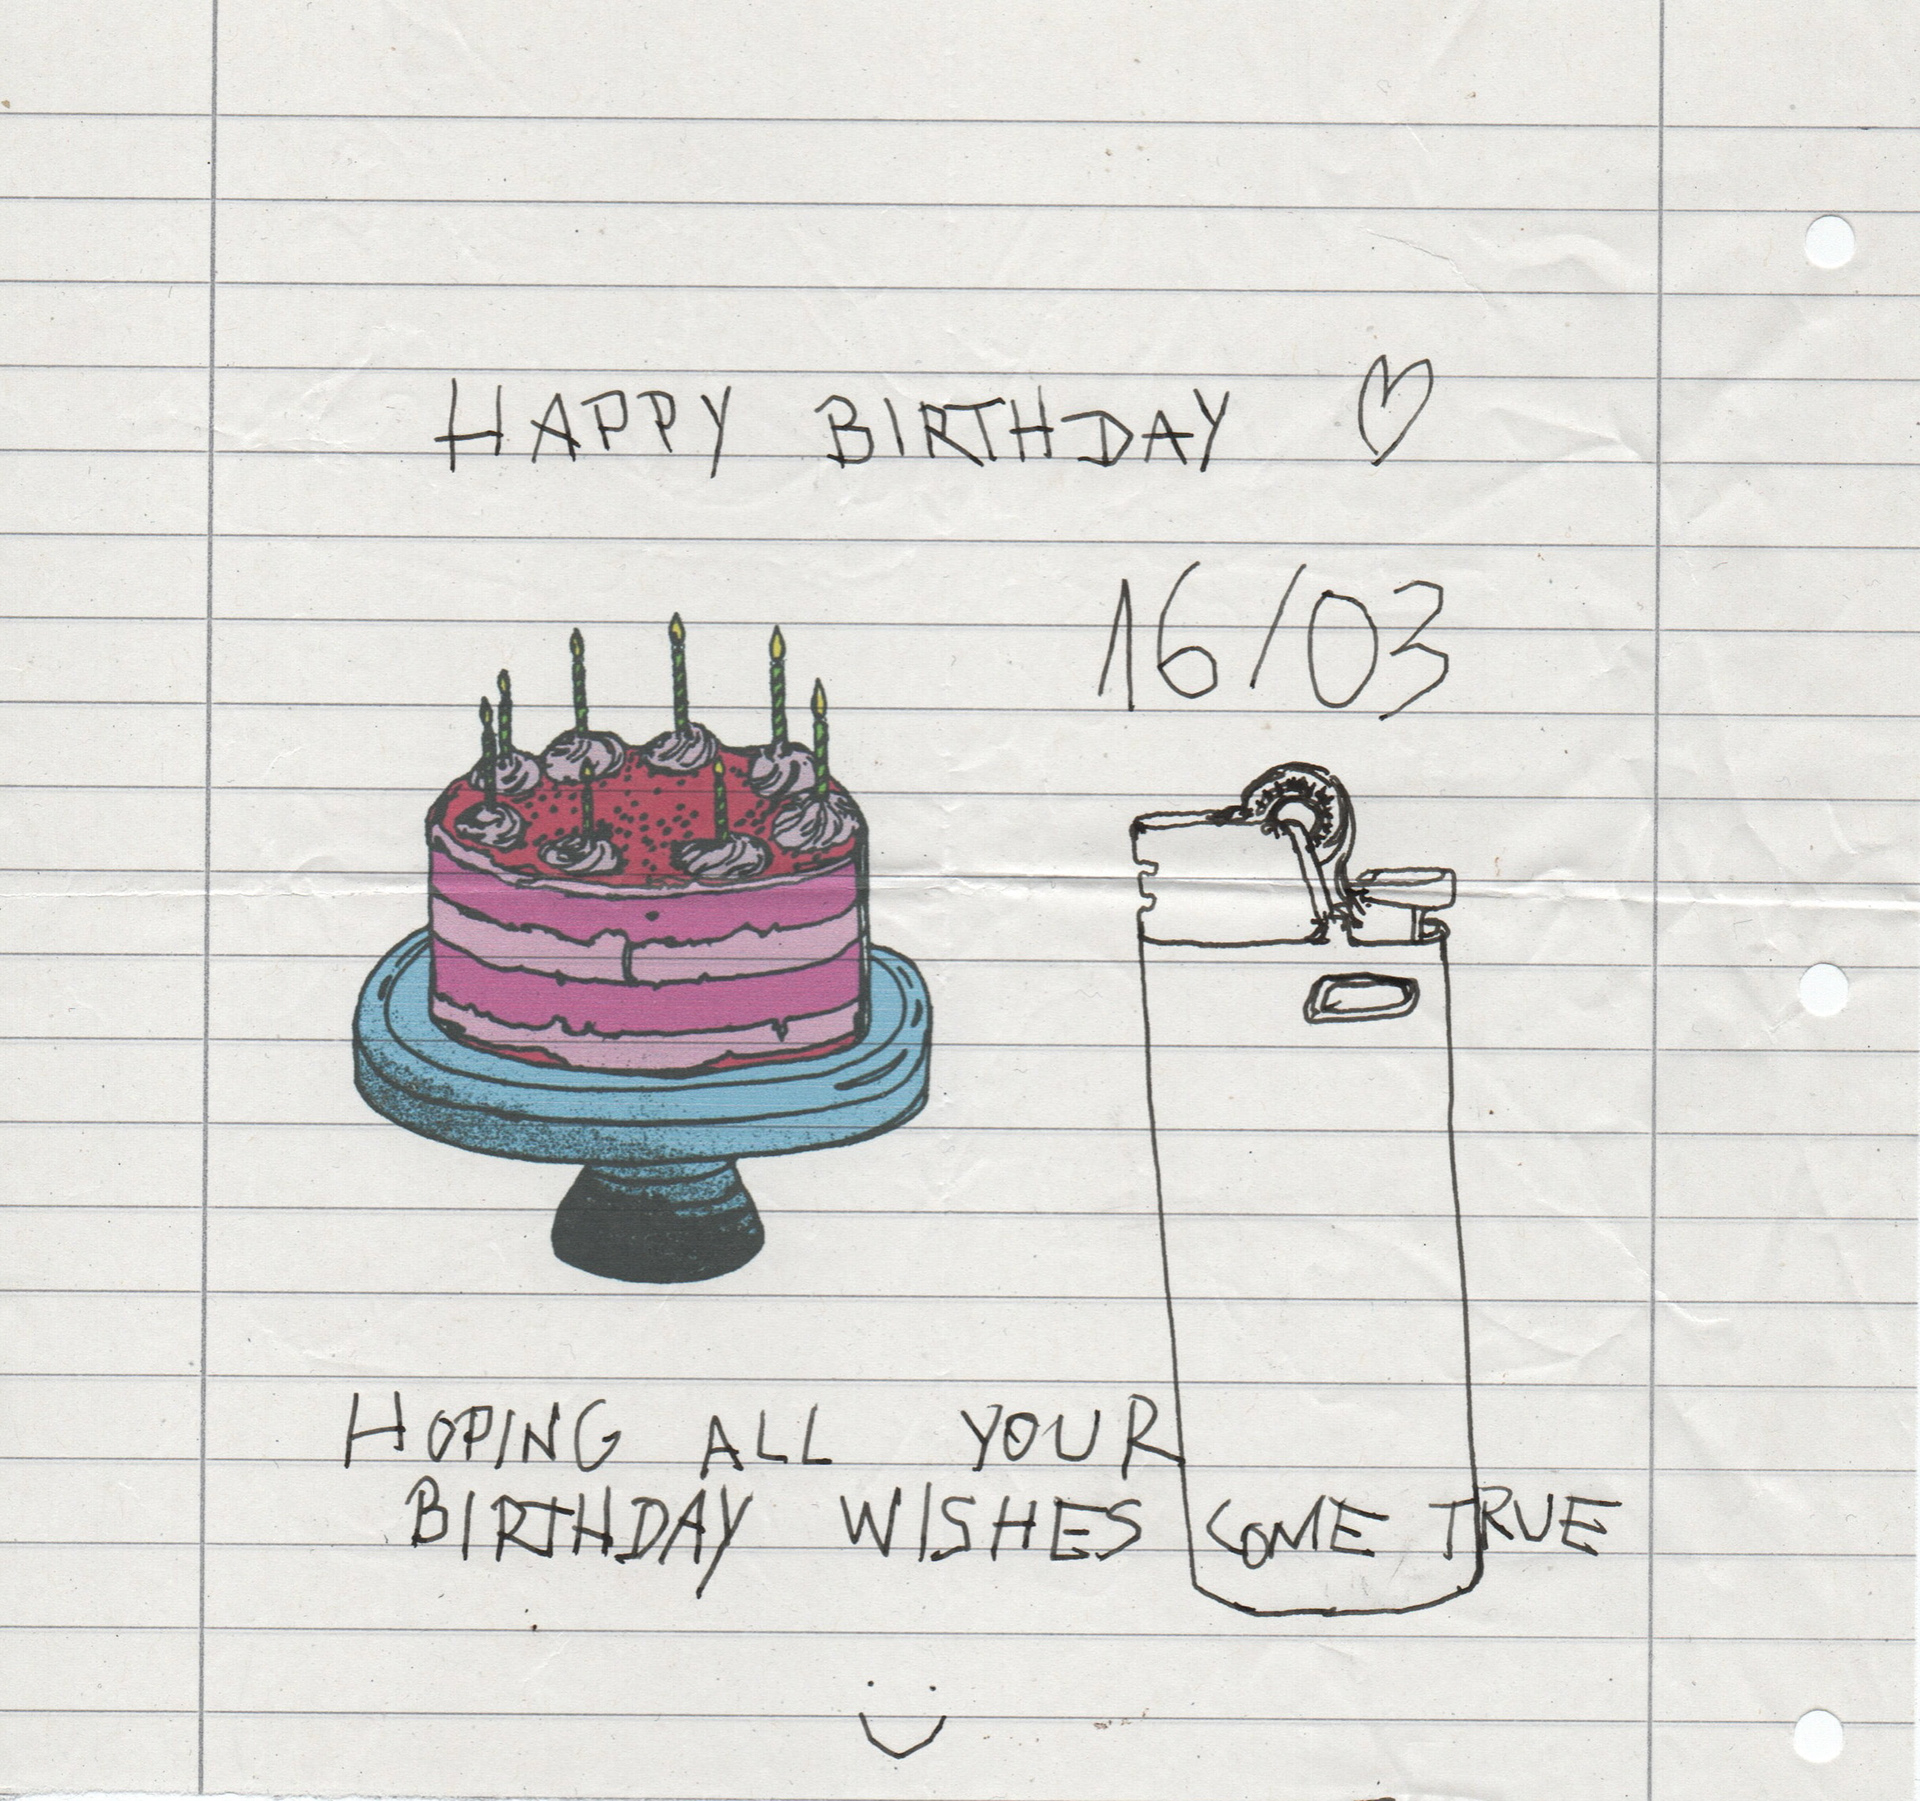 HAPPY BIRTHDAY ♡
16/03
HOPING ALL YOUR
BIRTHDAY WISHES COME TRUE